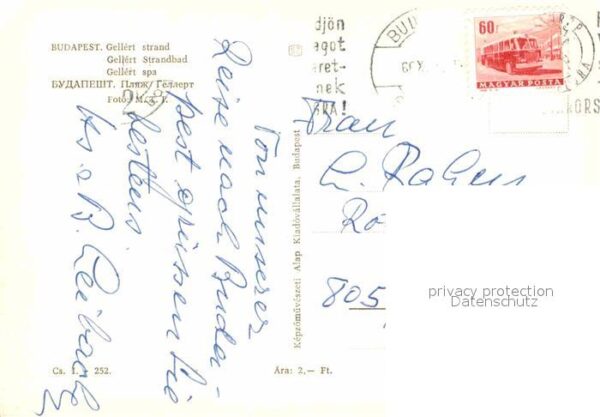 BUDAPEST. Gellért strand
Gellért Strandbad
Gellért spa
БУДАПЕШТ. Пляж Геллерт
Foto: M. T. I.
Von unserer
Reise nach Buda-
pest grüssen Sie
bestens
Cs. 1. 252.
Ára: 2,— Ft.
Képzőművészeti Alap Kiadóvállalata, Budapest
djön
agot
aret-
nek
60f
MAGYAR POSTA
Frau
805
privacy protection
Datenschutz